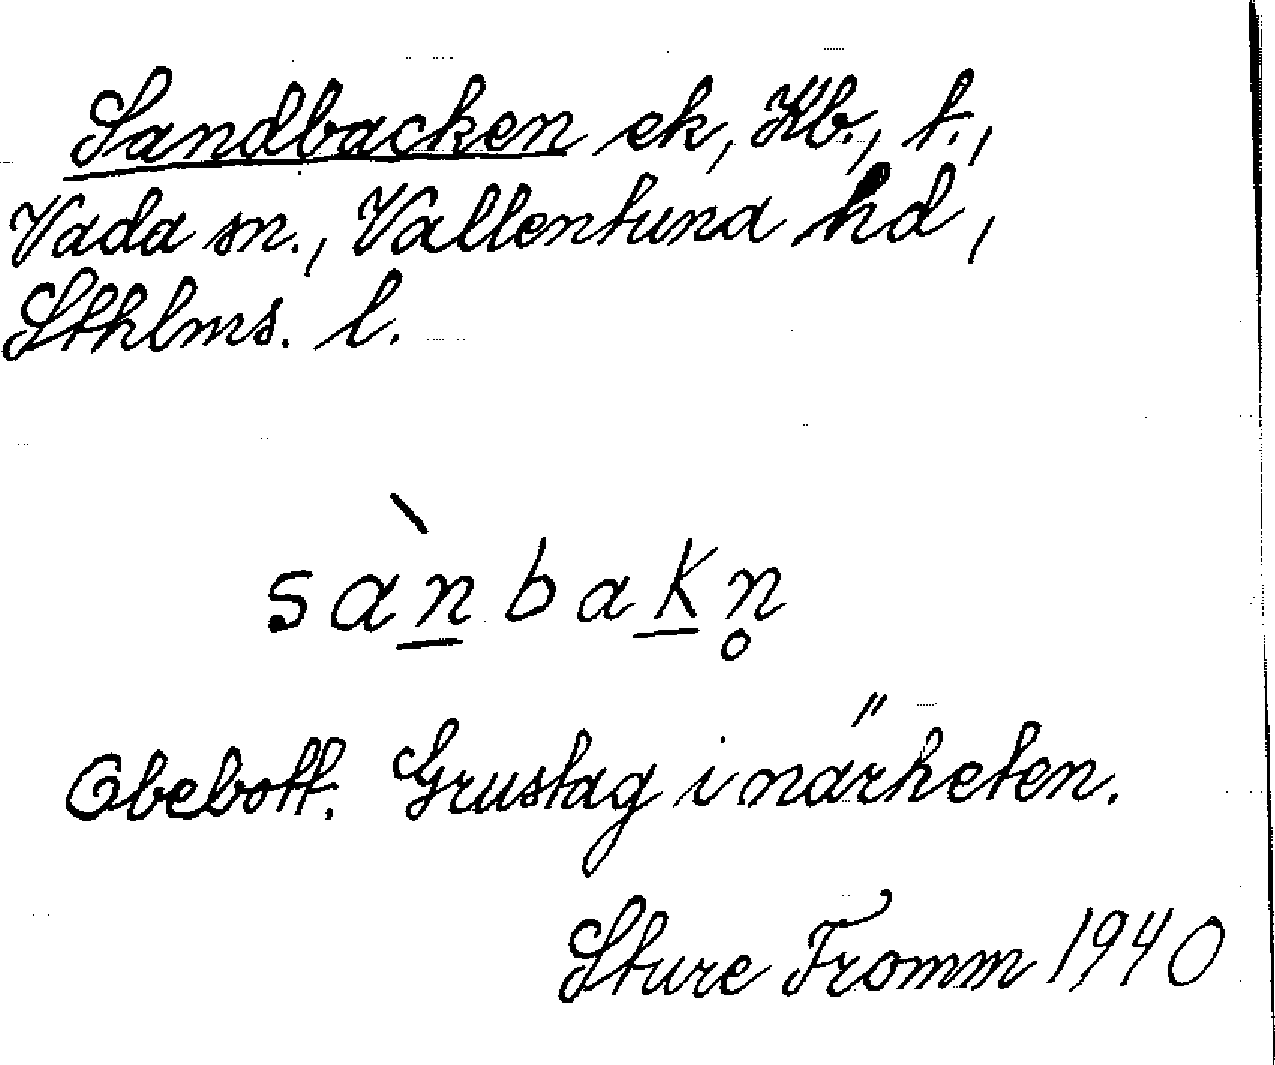 Sandbacken ek, Kb., t.,
Vada sn., Vallentuna hd,
Sthlms. l.
sànbakn̥
Obebott. Grustag i närheten.
Sture Fromm 1940